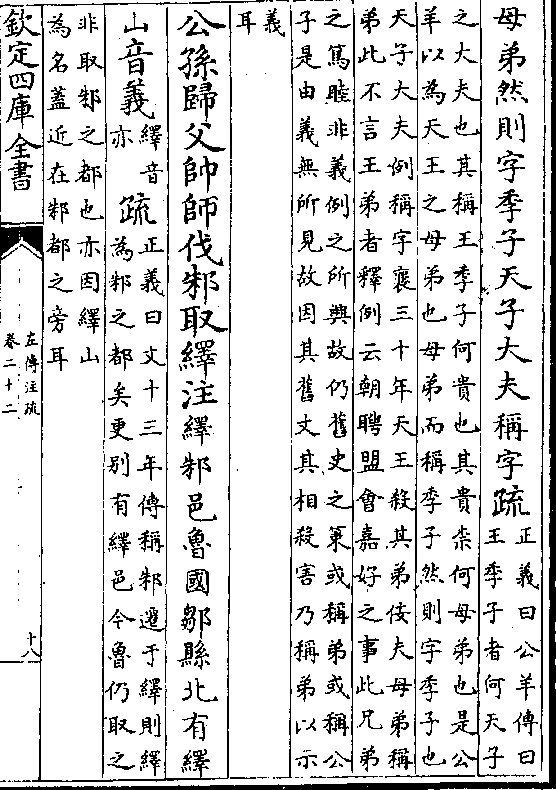 母弟然則字季子天子大夫稱字疏
正義曰公羊傳曰
王季子者何天子
之大夫也其稱王季子何貴也其貴柰何母弟也是公
羊以為天王之母弟也母弟而稱季子然則字季子也
天子大夫例稱字襄三十年天王殺其弟佞夫母弟稱
弟此不言王弟者釋例云朝聘盟會嘉好之事此兄弟
之篤睦非義例之所興故仍舊史之策或稱弟或稱公
子是由義無所見故因其舊文其相殺害乃稱弟以示
義
耳
公孫歸父帥師伐邾取繹注繹邾邑魯國鄒縣北有繹
山音義
繹音
亦
疏
正義曰文十三年傳稱邾遷于繹則繹
為邾之都矣更別有繹邑今魯仍取之
非取邾之都也亦因繹山
為名蓋近在邾都之旁耳
欽定四庫全書
左傳注疏
卷二十二
十八